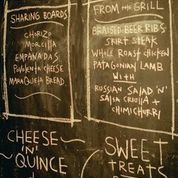 SHARING BOARDS
CHORIZO
MORCILLA
EMPANADAS
PROVOLETA CHEESE
BREAD
FROM THE GRILL
BRAISED BEEF RIBS
SKIRT STEAK
WHOLE ROAST CHICKEN
PATAGONIAN LAMB
WITH
RUSSIAN SALAD 'N'
SALSA CRIOLLA &
CHIMICHURRI
CHEESE
'N'
QUINCE
SWEET
TREATS